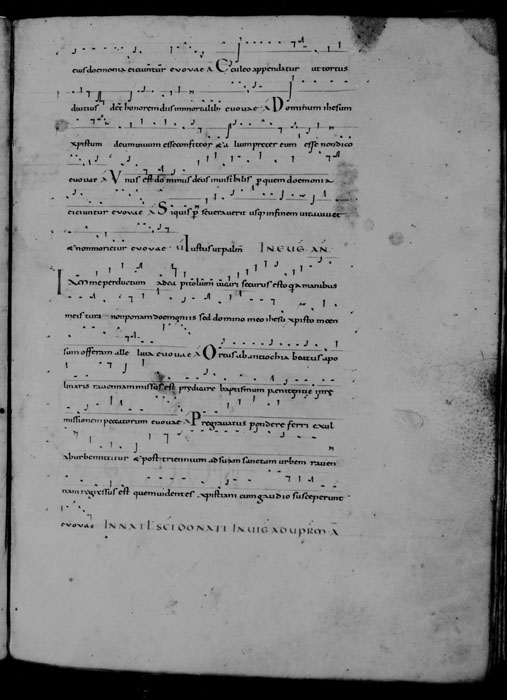 eius doemonia eiciuntur euouae A Eculeo appendatur ut tortus
diutius det honorem diis inmortalibus euouae A Dominum ihesum
xpistum deum uiuum esse confiteor & alium preter eum esse non dico
euouae A Unus est dominus deus inuisibilis p quem doemonia
eiciuntur euouae A Siquis pseuerauerit usq in finem uita uiuet
& non morietur euouae Iustus ut palm IN EUG AN
Iam me perductum ad securus esto qa manibus
meis tura non ponam doemoniis sed domino meo ihesu xpisto me en
sum offeram alle luia euouae A Ortus ab antiochia beatus apo
linaris rauennam missus est predicare baptismum penitentie in re
missionem peccatorum euouae A Pregrauatus pondere ferri exul
ab urbe mittitur & post triennium ad suam sanctam urbem rauen
nam regressus est quem uidentes xpistiani cum gaudio susceperunt
euouae IN NAT SCI DONATI IN UIG AD UPRM A